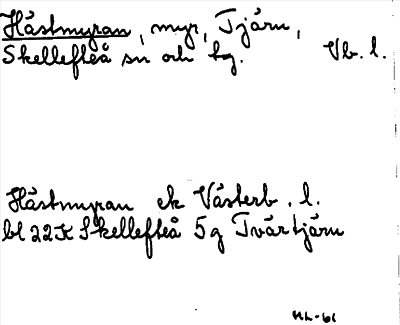 Hästmyran, myr, Tjärn,
Skellefteå sn och hg. Vb. l.
Hästmyran ek Västerb. l.
bl 22K Skellefteå 5g Tvärtjärn